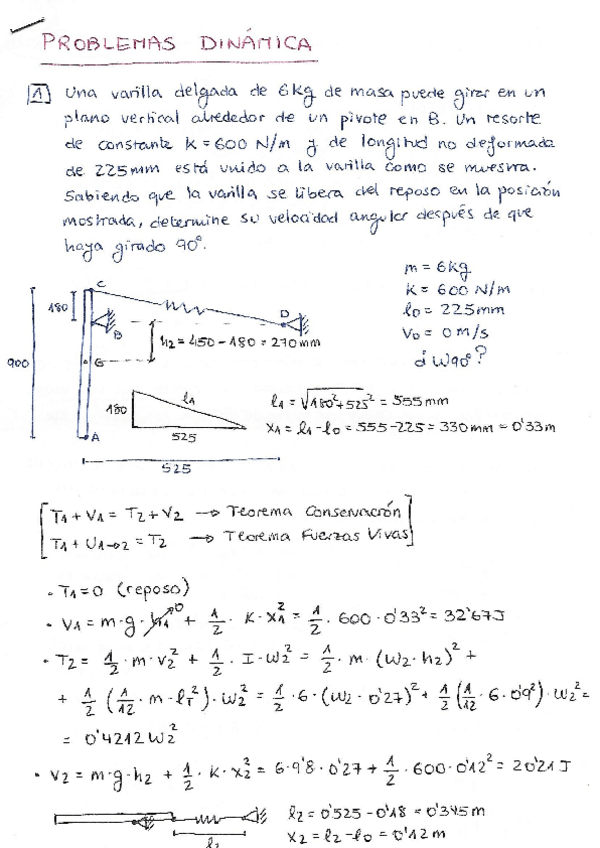 PROBLEMAS DINÁMICA
1 Una varilla delgada de 6kg de masa puede girar en un
plano vertical alrededor de un pivote en B. Un resorte
de constante K = 600 N/m y de longitud no deformada
de 225mm está unido a la varilla como se muestra.
Sabiendo que la varilla se libera del reposo en la posición
mostrada, determine su velocidad angular después de que
haya girado 90º.
m = 6kg
K = 600 N/m
l0 = 225mm
V0 = 0 m/s
¿ W90º?
C
180
D
B
h2 = 450 - 180 = 270mm
900
G
A
180
l1
525
525
l1 = √180²+525² = 555mm
X1 = l1 - l0 = 555 - 225 = 330mm = 0'33m
T1 + V1 = T2 + V2 → Teorema Conservación
T1 + U1→2 = T2 → Teorema Fuerzas Vivas
• T1 = 0 (reposo)
• V1 = m·g·h1 0 + 1/2 · K · X1² = 1/2 · 600 · 0'33² = 32'67J
• T2 = 1/2 · m · v2² + 1/2 · I · w2² = 1/2 · m · (w2 · h2)² +
+ 1/2 (1/12 · m · lT²) · w2² = 1/2 · 6 · (w2 · 0'27)² + 1/2 (1/12 · 6 · 0'9²) · w2² =
= 0'4212 w2²
• V2 = m·g·h2 + 1/2 · K · X2² = 6·9'8·0'27 + 1/2 · 600 · 0'12² = 20'21 J
l2 = 0'525 - 0'18 = 0'345m
X2 = l2 - l0 = 0'12m
l2